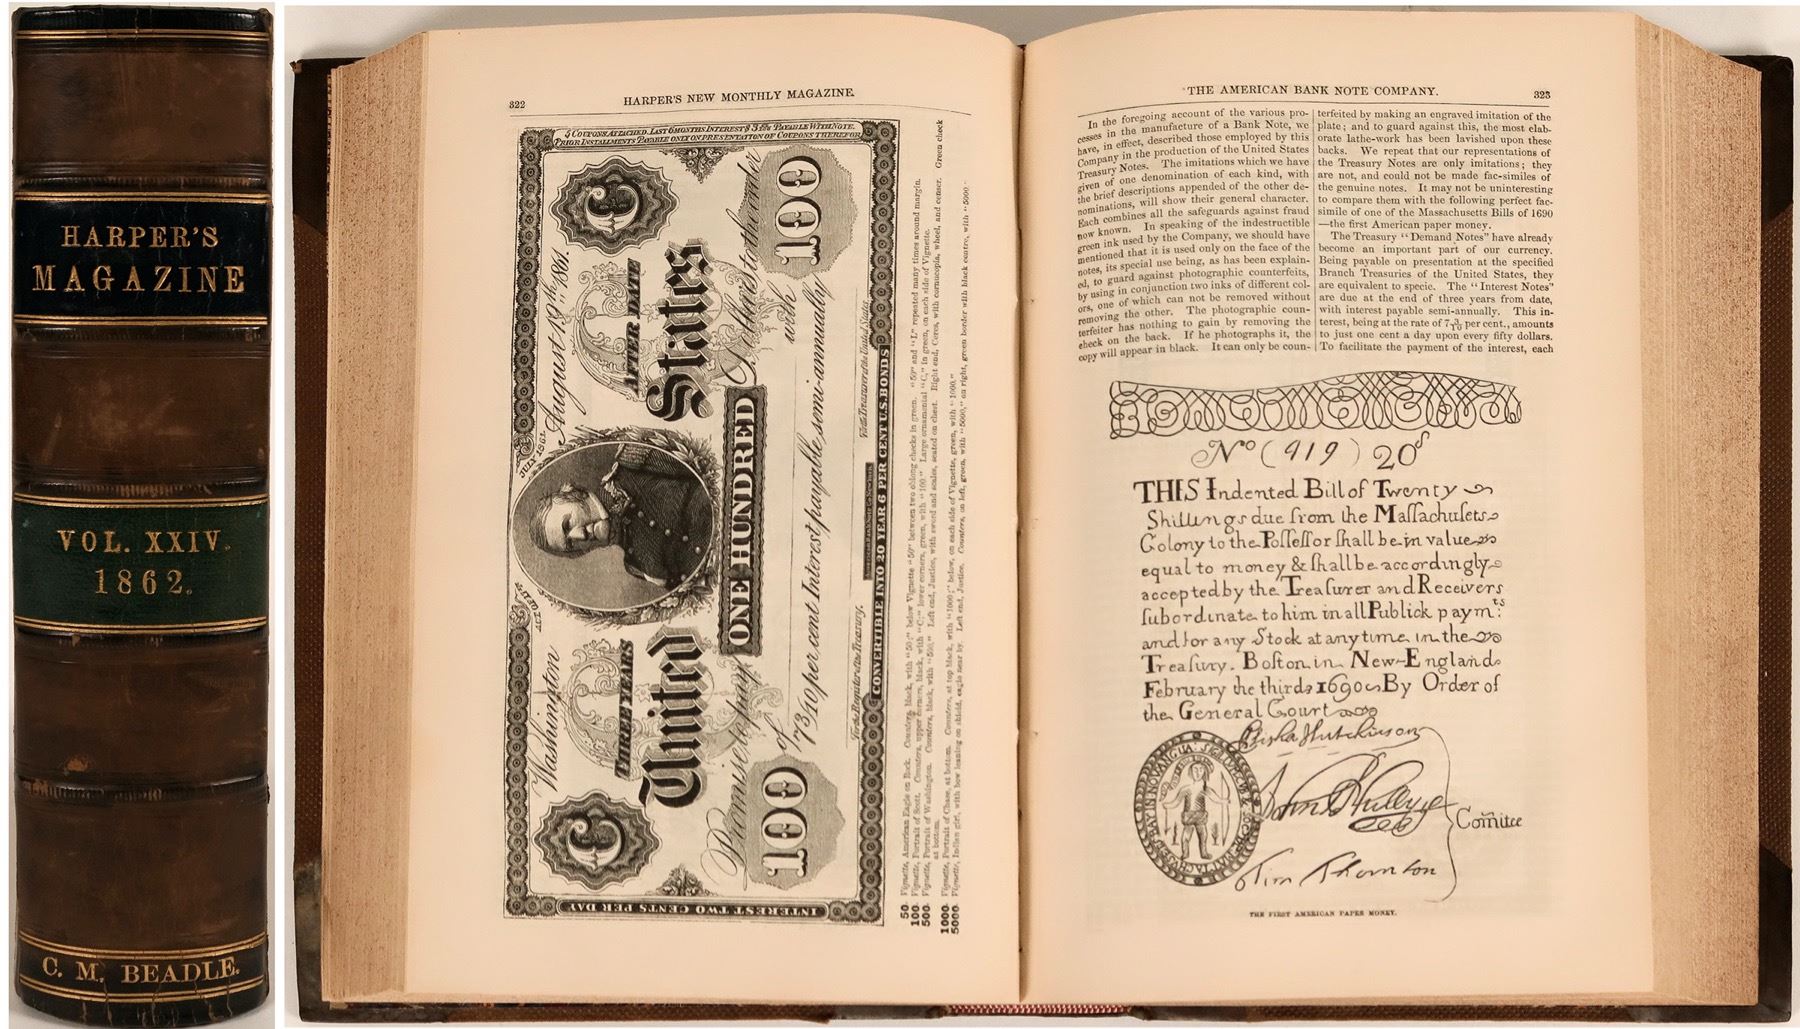 HARPER'S
MAGAZINE
VOL. XXIV.
1862.
C. M. BEADLE.
322
HARPER'S NEW MONTHLY MAGAZINE.
5 COUPONS ATTACHED. LAST 6 MONTHS INTEREST $3 65/100 PAYABLE WITH NOTE.
PRIOR INSTALLMENTS PAYABLE ONLY ON PRESENTATION OF COUPONS THEREFOR
Washington August 19th 1861.
THREE YEARS AFTER DATE
United States
Promise to pay
ONE HUNDRED Dollars
of with
100 100
7 3/10 per cent Interest payable semi-annually
For the Register of the Treasury. For the Treasurer of the United States.
CONVERTIBLE INTO 20 YEAR 6 PER CENT U.S. BONDS
INTEREST TWO CENTS PER DAY
50. Vignette, American Eagle on Rock. Counters, black, with "50;" below Vignette "50" between two oblong checks in green. "50" and "L" repeated many times around margin.
100. Vignette, Portrait of Scott. Counters, upper corners, black, with "C;" lower corners, green, with "100." Large ornamental "C," in green, on each side of Vignette.
500. Vignette, Portrait of Washington. Counters, black, with "500." Left end, Justice, with sword and scales, seated on chest. Right end, Ceres, with cornucopia, wheel, and censer. Green check
at bottom.
1000. Vignette, Portrait of Chase, at bottom. Counters, at top black, with "1000;" below, on each side of Vignette, green, with "1000."
5000. Vignette, Indian girl, with bow leaning on shield, eagle near by. Left end, Justice. Counters, on left, green, with "5000," on right, green border with black centre, with "5000."
THE AMERICAN BANK NOTE COMPANY. 323
In the foregoing account of the various pro-
cesses in the manufacture of a Bank Note, we
have, in effect, described those employed by this
Company in the production of the United States
Treasury Notes. The imitations which we have
given of one denomination of each kind, with
the brief descriptions appended of the other de-
nominations, will show their general character.
Each combines all the safeguards against fraud
now known. In speaking of the indestructible
green ink used by the Company, we should have
mentioned that it is used only on the face of the
notes, its special use being, as has been explain-
ed, to guard against photographic counterfeits,
by using in conjunction two inks of different col-
ors, one of which can not be removed without
removing the other. The photographic coun-
terfeiter has nothing to gain by removing the
check on the back. If he photographs it, the
copy will appear in black. It can only be coun-
terfeited by making an engraved imitation of the
plate; and to guard against this, the most elab-
orate lathe-work has been lavished upon these
backs. We repeat that our representations of
the Treasury Notes are only imitations; they
are not, and could not be made fac-similes of
the genuine notes. It may not be uninteresting
to compare them with the following perfect fac-
simile of one of the Massachusetts Bills of 1690
—the first American paper money.
The Treasury "Demand Notes" have already
become an important part of our currency.
Being payable on presentation at the specified
Branch Treasuries of the United States, they
are equivalent to specie. The "Interest Notes"
are due at the end of three years from date,
with interest payable semi-annually. This in-
terest, being at the rate of 7 3/10 per cent., amounts
to just one cent a day upon every fifty dollars.
To facilitate the payment of the interest, each
No (919) 20s
THIS Indented Bill of Twenty
Shillings due from the Maſſachuſets
Colony to the Poſſeſſor ſhall be in value
equal to money & ſhall be accordingly
accepted by the Treaſurer and Receivers
ſubordinate to him in all Publick paymts:
and for any Stock at any time in the
Treaſury. Boſton in New-England
February the third 1690 By Order of
the General Court
Elisha Hutchinson
Comitee
Tim Thornton
THE FIRST AMERICAN PAPER MONEY.